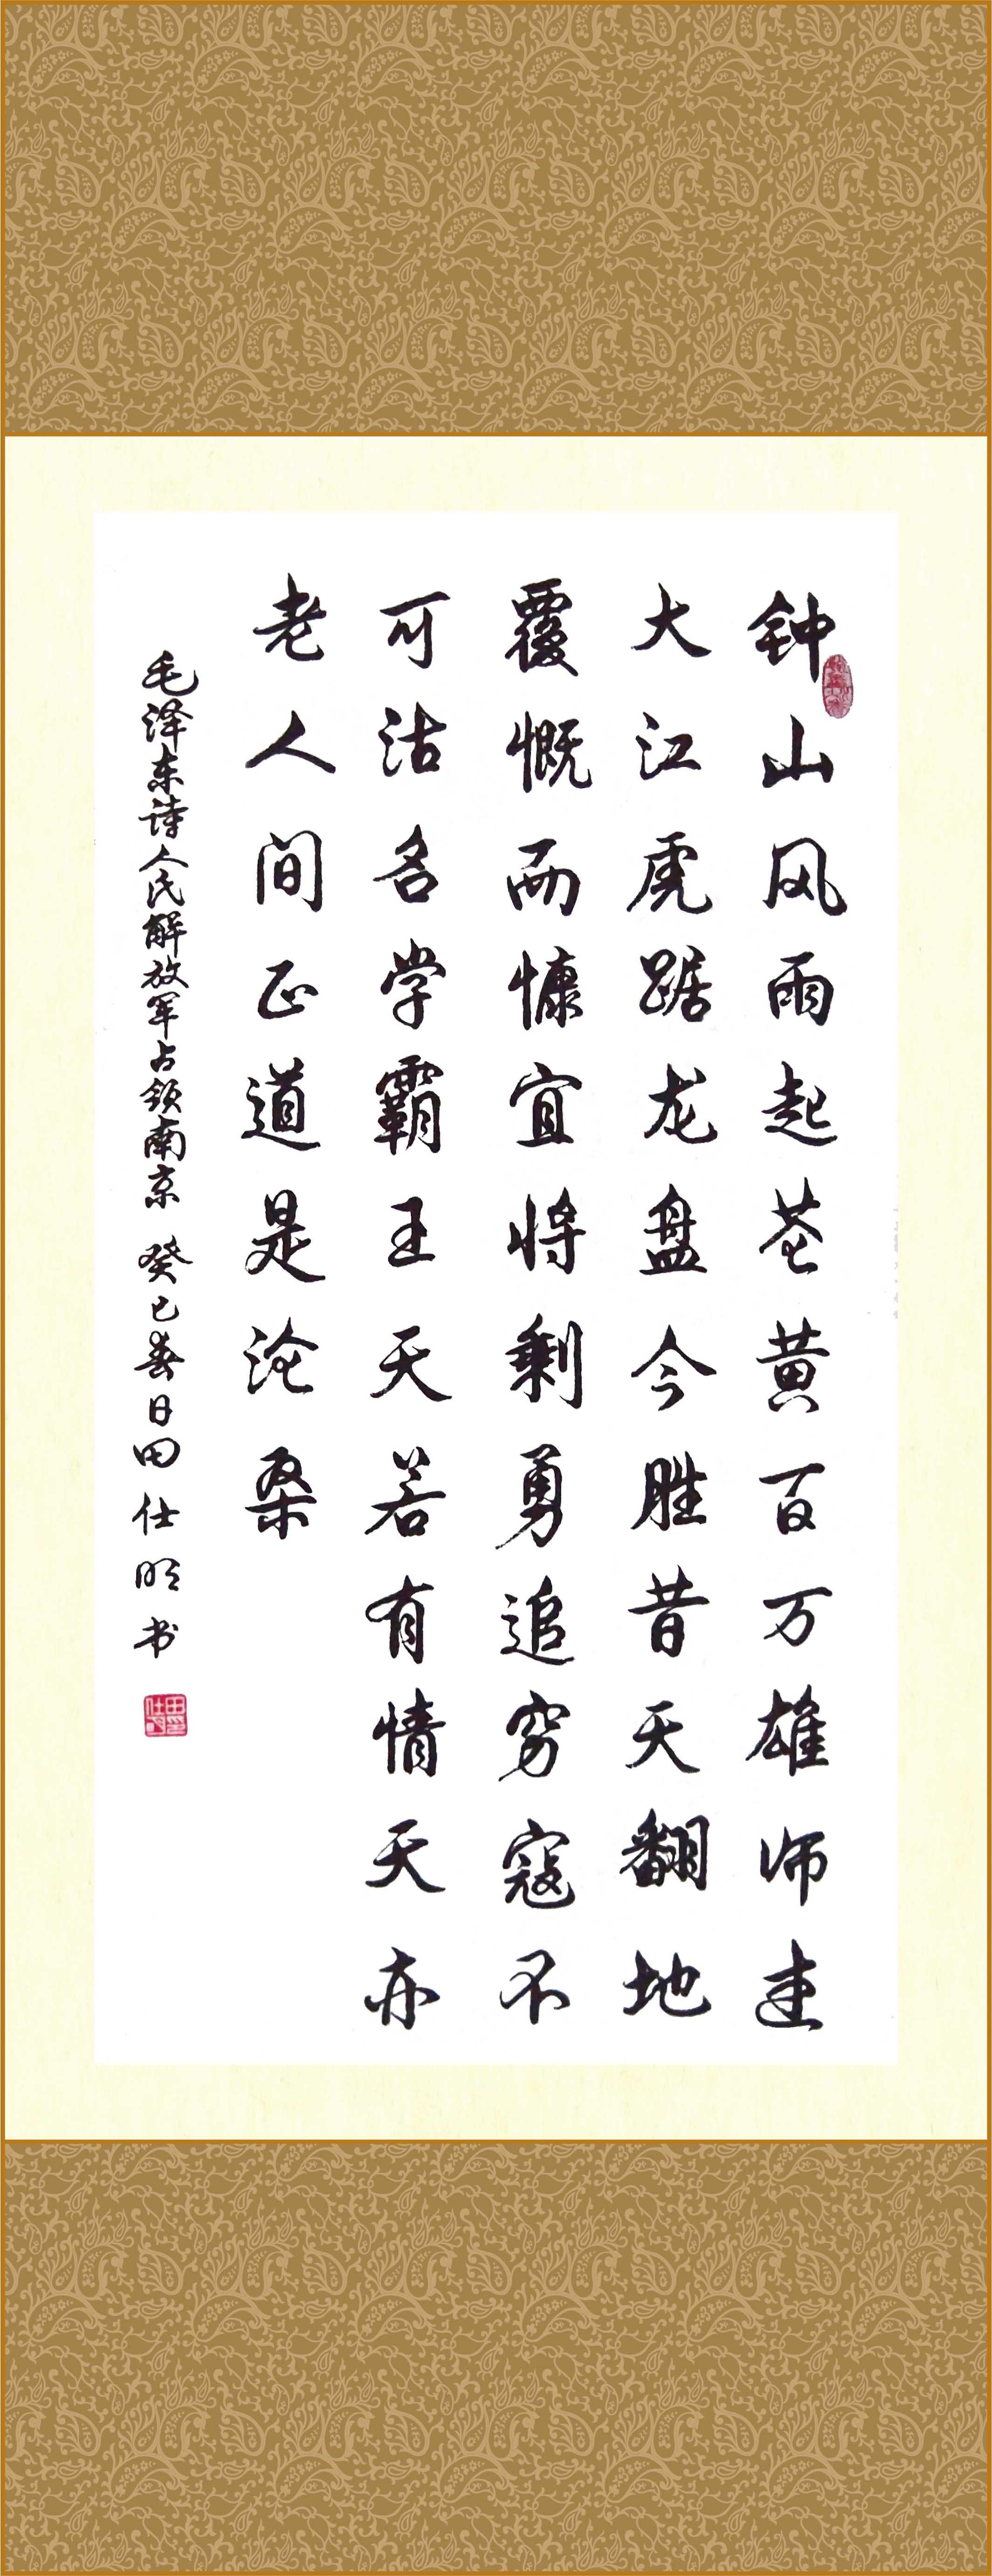 钟山风雨起苍黄百万雄师过
大江虎踞龙盘今胜昔天翻地
覆慨而慷宜将剩勇追穷寇不
可沽名学霸王天若有情天亦
老人间正道是沧桑
毛泽东诗人民解放军占领南京 癸巳春日田仕明书